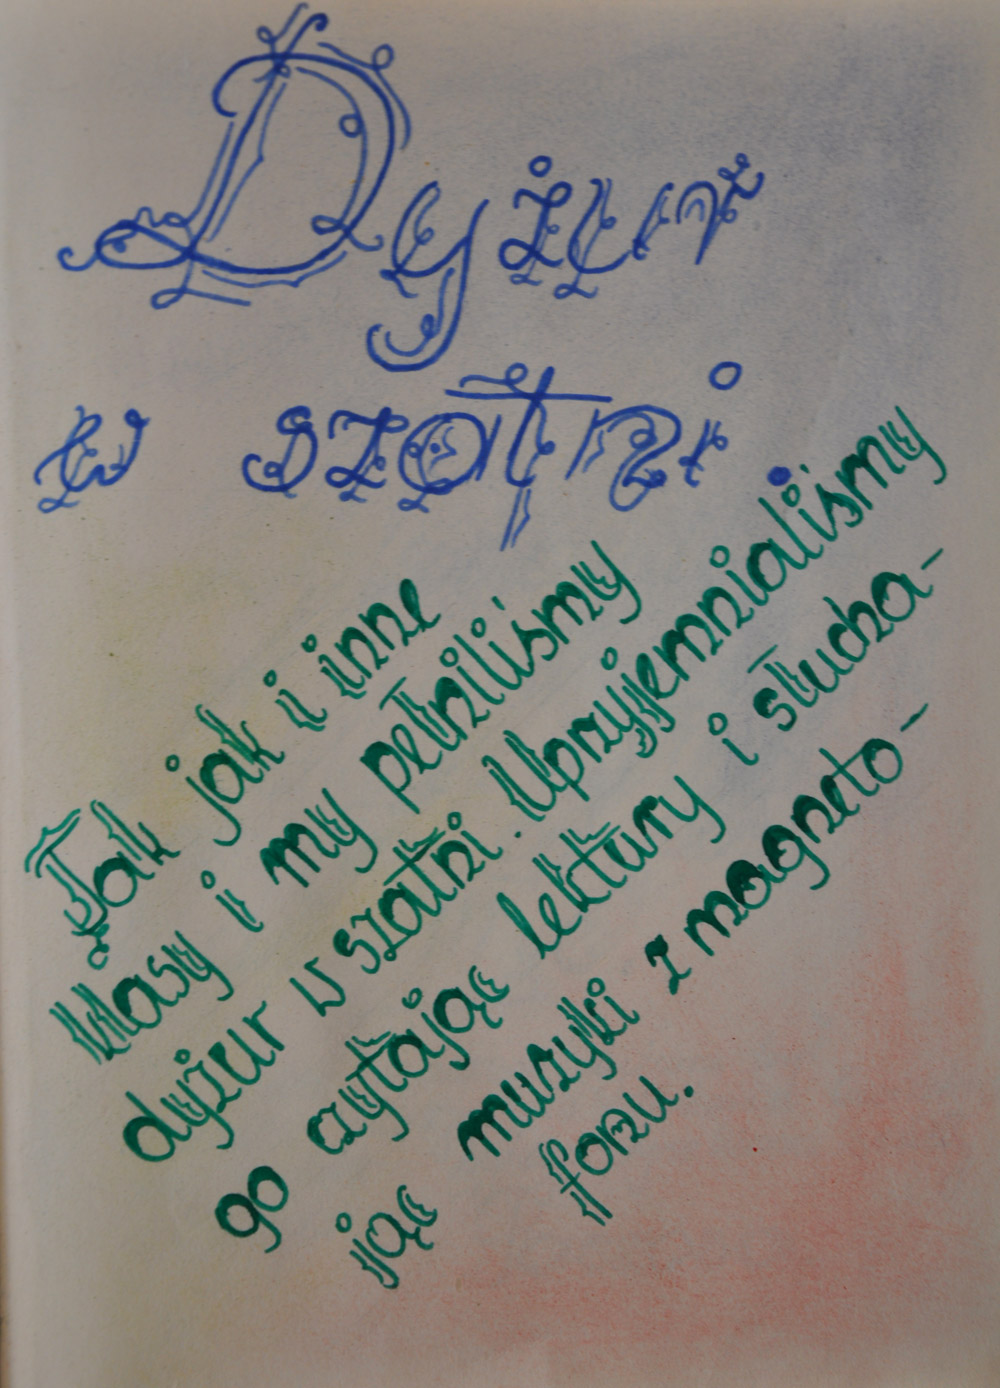 Dyżur
w szatni
Tak jak i inne
klasy i my pełniliśmy
dyżur w szatni. Uprzyjemnialiśmy
go czytając lektury i słucha-
jąc muzyki z magneto-
fonu.